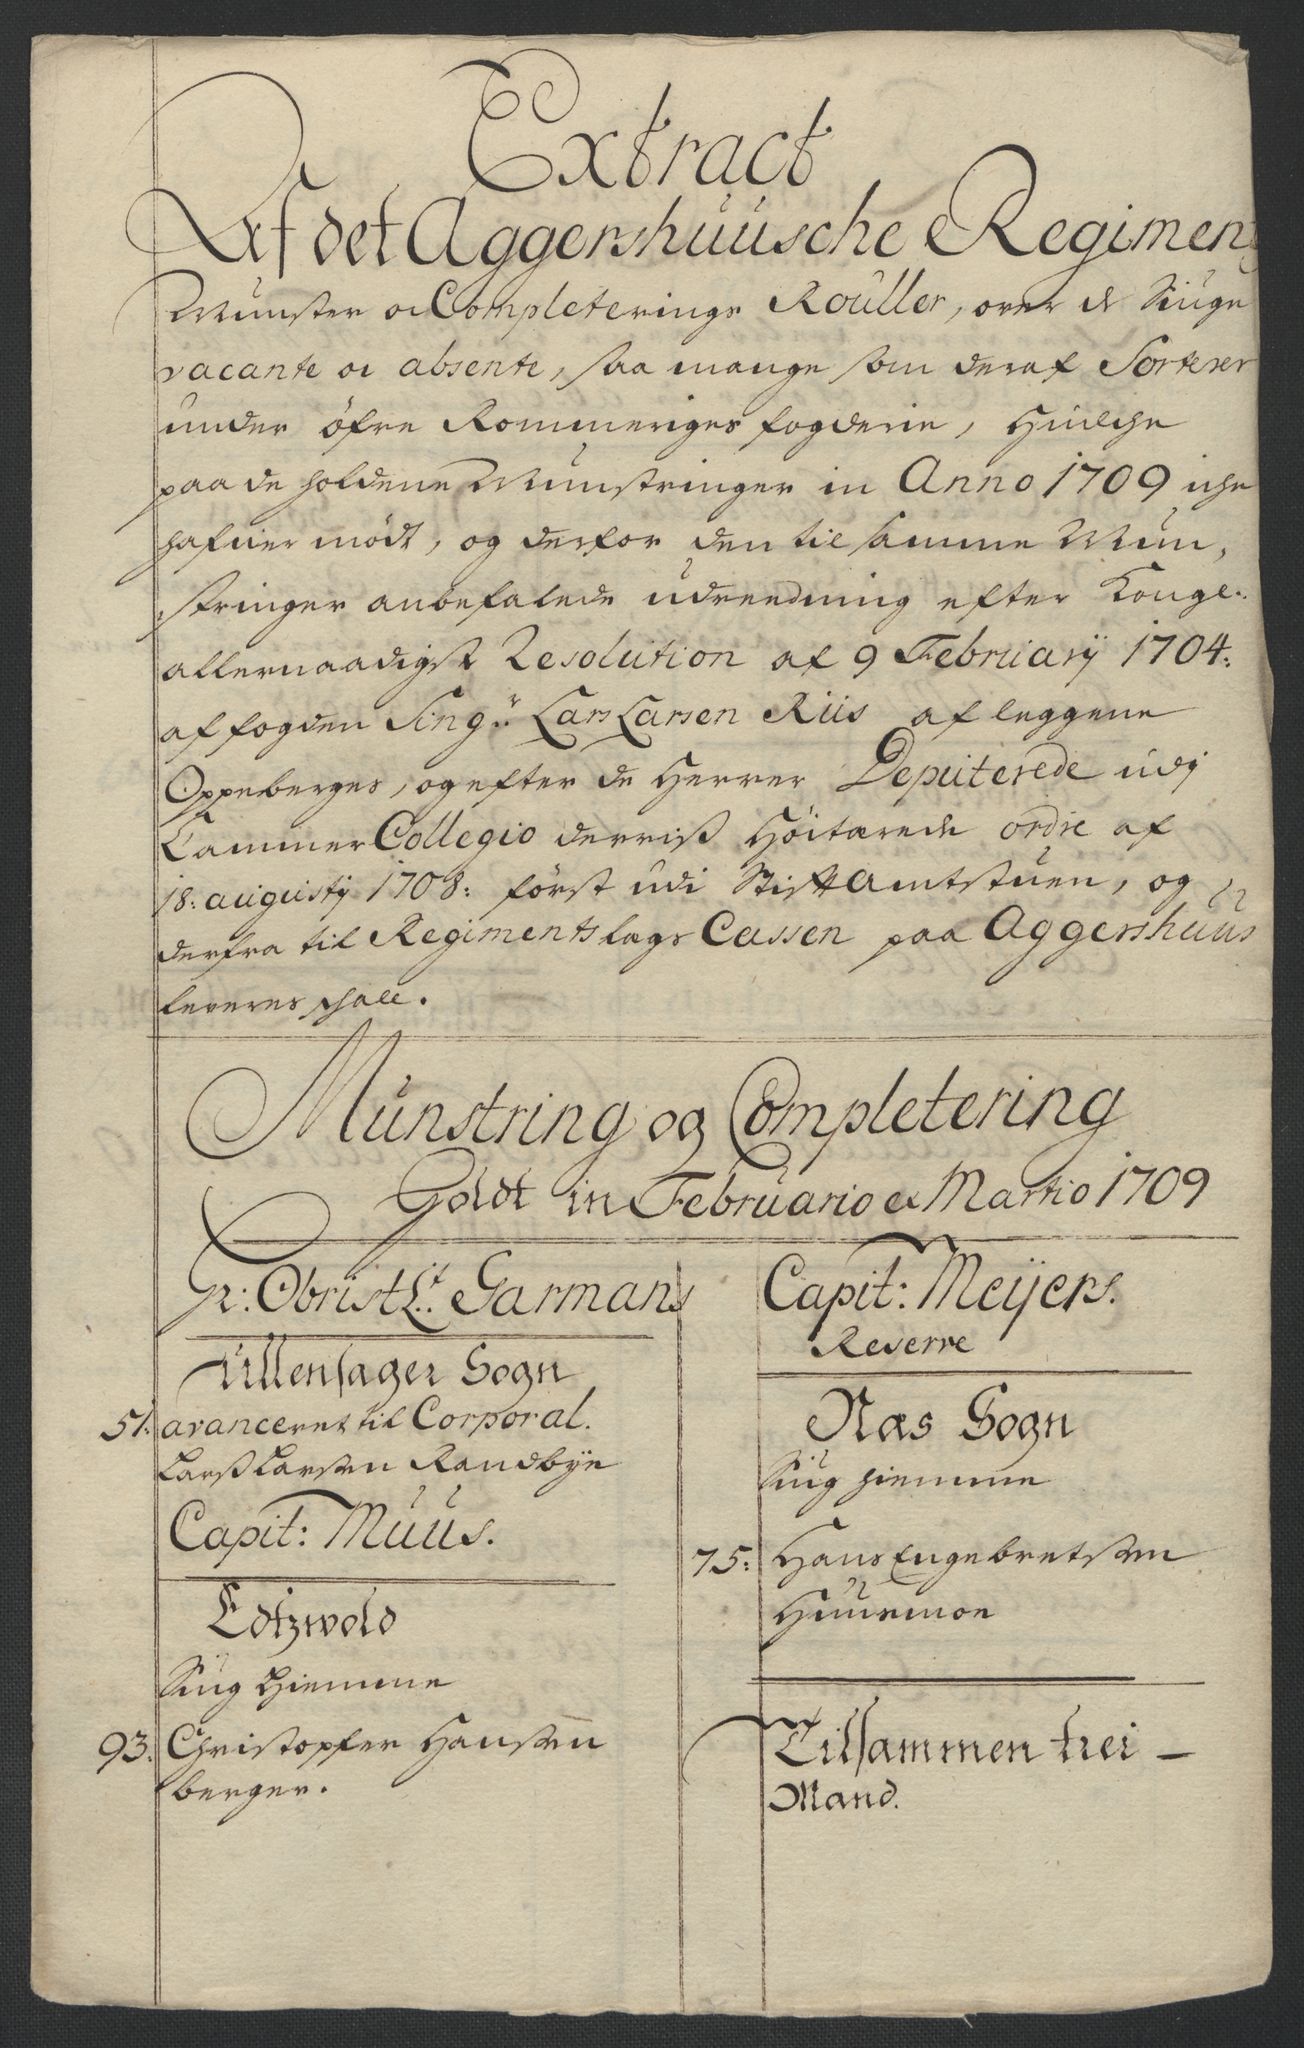 Extract
Af det Aggershuusche Regiment
Munster oc Completerings Rouller, over de Siuge
vacante oc absente, saa mange som deraf Sorterer
under öfre Rommeriges fogderie, Huilche
paa de holdene Munstringer in Anno 1709 iche
hafuer mödt, og derfor den til samme Mun,
stringer anbefalede udreedning efter Kongl:
allernaadigst Resolution af 9 Februarij 1704:
af fogden Sing.r Lars Larsen Riis af leggene
Oppeberges, og efter de Herrer Deputerede udj
Cammer Collegio derriß Höitærede ordre af
18: augustij 1708: först udi Stift Amtstuen, og
derfra til Regimentslags Cassen paa Aggershuus
leveres schall.
Munstring og Completering
Holdt in Februario et Martio 1709
Hr: Obrist Lt. Garmans
Ullensager Sogn
51: avanceret til Corporal.
Larß Larsen Randbye
Capit: Muus.
Edtzwold
Siug hiemme
93: Christopfer Hansen
berger.
Capit: Meijers.
Reserve
Næs Sogn
Siug hiemme
75: Hans Engebretsen
Huusmoe
Tilsammen trei –
Mand.